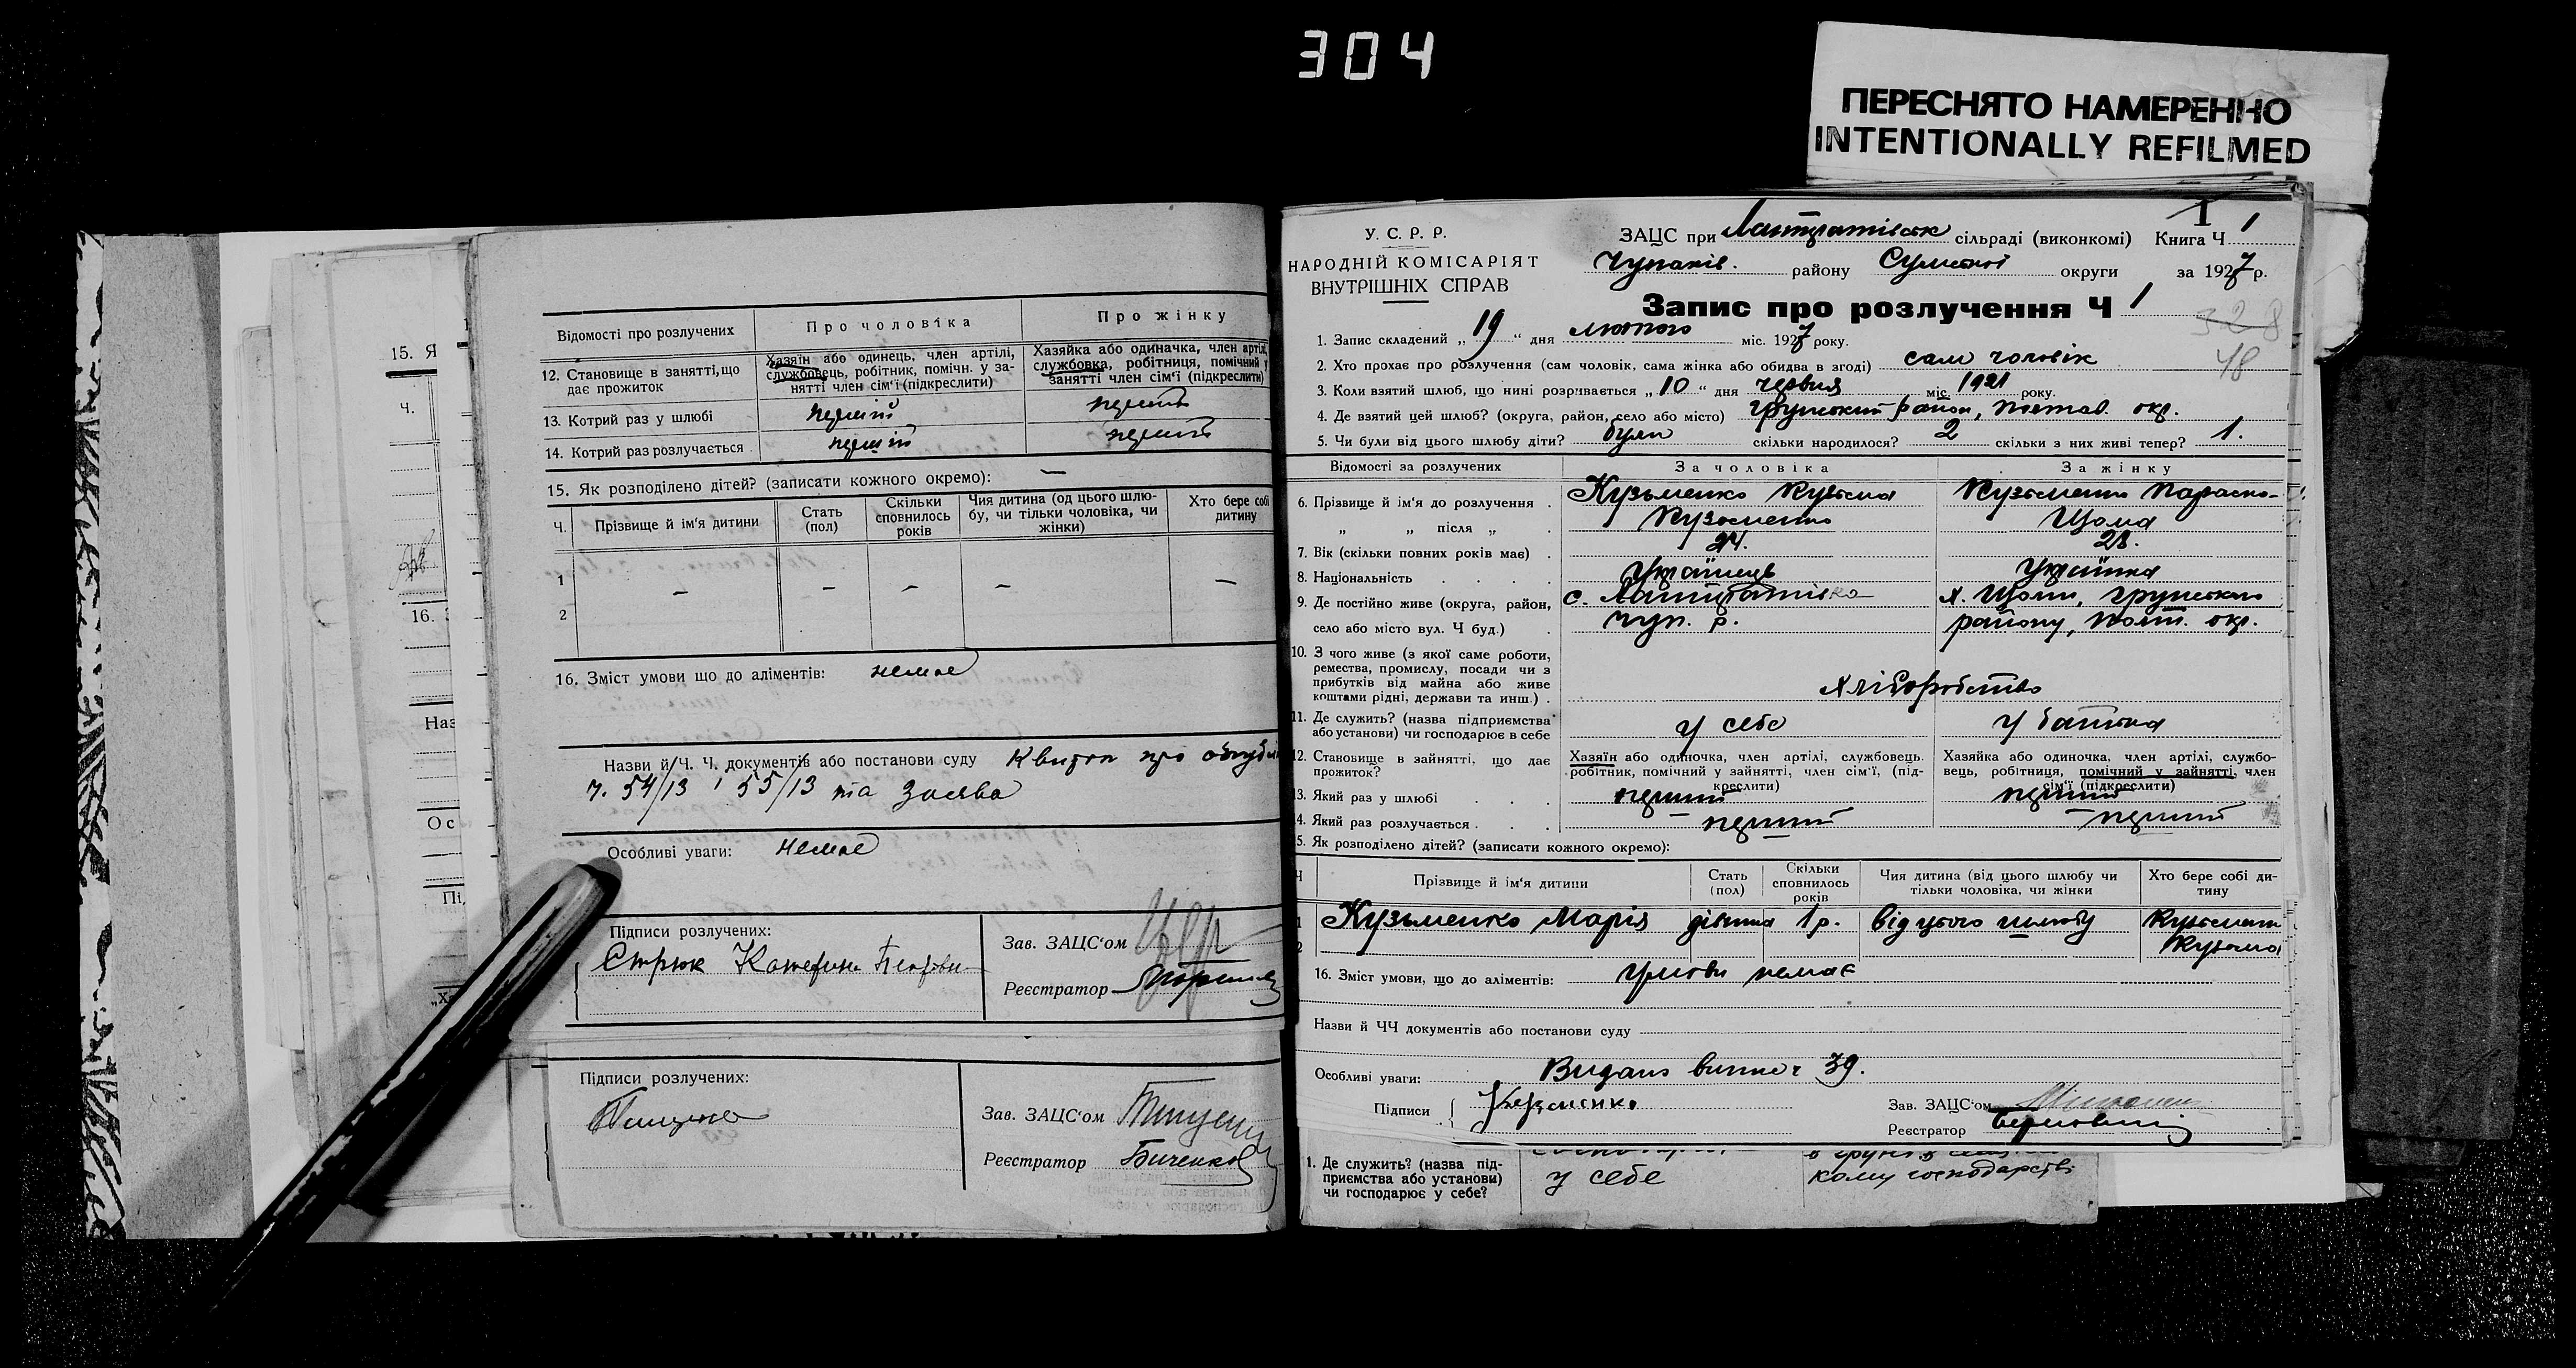 304
ПЕРЕСНЯТО НАМЕРЕННО
INTENTIONALLY REFILMED
15. Я
Ч.
16.
Наз
Ос
Під
Відомості про розлучених
Про чоловіка
Про жінку
12. Становище в занятті, що дає прожиток
Хазяїн або одинець, член артілі, службовець, робітник, помічн. у занятті член сім'ї (підкреслити)
Хазяйка або одиначка, член артілі, службовка, робітниця, помічний у занятті член сім'ї (підкреслити)
13. Котрий раз у шлюбі
перший
перший
14. Котрий раз розлучається
перший
перший
15. Як розподілено дітей? (записати кожного окремо): —
Ч.
Прізвище й ім'я дитини
Стать (пол)
Скільки сповнилось років
Чия дитина (од цього шлюбу, чи тільки чоловіка, чи жінки)
Хто бере собі дитину
1 – – – – –
2
16. Зміст умови що до аліментів: немає
Назви й Ч. Ч. документів або постанови суду Квиток про
ч. 54/13 і 55/13 та Заява
Особливі уваги: немає
Підписи розлучених:
Стрюк Катерина
Зав. ЗАЦС'ом
Реєстратор
Підписи розлучених:
Зав. ЗАЦС'ом
Реєстратор Биченко
У. С. Р. Р.
НАРОДНІЙ КОМІСАРІЯТ
ВНУТРІШНІХ СПРАВ
ЗАЦС при сільраді (виконкомі) Книга Ч 1
Чупахів. району Сумської округи за 1927 р.
Запис про розлучення Ч 1
328
48
1. Запис складений „ 19 “ дня лютого міс. 1927 року.
2. Хто прохає про розлучення (сам чоловік, сама жінка або обидва в згоді) сам чоловік
3. Коли взятий шлюб, що нині розривається „ 10 “ дня червня міс. 1921 року.
4. Де взятий цей шлюб? (округа, район, село або місто) Грунський район, Полтав. окр.
5. Чи були від цього шлюбу діти? були скільки народилося? 2 скільки з них живі тепер? 1.
Відомості за розлучених
За чоловіка
За жінку
6. Прізвище й ім'я до розлучення .
Кузьменко Кузьма
Кузьменко Параско-
„ „ після „ .
Кузьменко
Цьома
7. Вік (скільки повних років має) .
24.
28.
8. Національність . . . .
Українець
Українка
9. Де постійно живе (округа, район, село або місто вул. Ч буд.) .
чуп. р.
х. Цьоми, Грунського
району, Полт. окр.
10. З чого живе (з якої саме роботи, ремества, промислу, посади чи з прибутків від майна або живе коштами рідні, держави та инш.) .
Хліборобство
11. Де служить? (назва підприємства або установи) чи господарює в себе
у себе
у батька
12. Становище в зайнятті, що дає прожиток?
Хазяїн або одиночка, член артілі, службовець робітник, помічний у зайнятті, член сім'ї, (підкреслити)
Хазяйка або одиночка, член артілі, службовець, робітниця, помічний у зайнятті, член сім'ї (підкреслити)
13. Який раз у шлюбі . . .
перший
перший
14. Який раз розлучається . . .
перший
перший
15. Як розподілено дітей? (записати кожного окремо):
Ч
Прізвище й ім'я дитини
Стать (пол)
Скільки сповнилось років
Чия дитина (від цього шлюбу чи тільки чоловіка, чи жінки
Хто бере собі дитину
1 Кузьменко Марія 1 р. від цього шлюбу Кузьменко
2 Кузьма
16. Зміст умови, що до аліментів: умови немає
Назви й ЧЧ документів або постанови суду
Особливі уваги: Видано ч 39.
Підписи Кузменко
Зав. ЗАЦС'ом
Реєстратор
1. Де служить? (назва підприємства або установи) чи господарює у себе?
у себе
кому господарстві